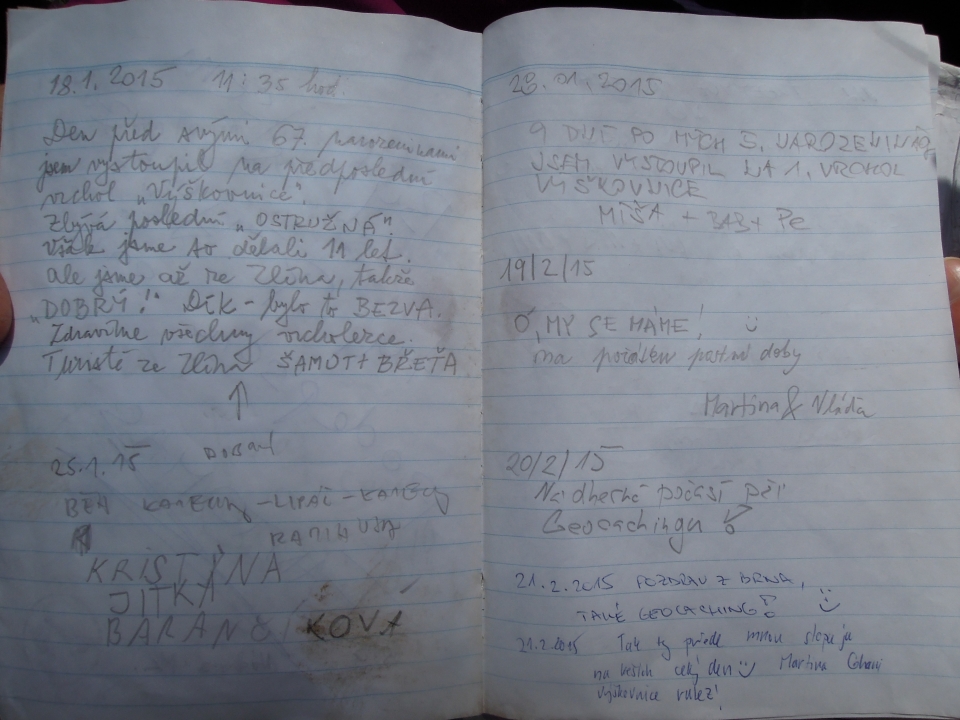 18.1.2015 11:35 hod.
Den před svými 67. narozeninami
jsem vystoupil na předposlední
vrchol „Výškovnice".
Zbývá poslední „OSTRUŽNÁ".
Však jsme to dělali 11 let.
ale jsme až ze Zlína, takže
„DOBRÝ!" Dík - bylo to BEZVA.
Zdravíme všechny vrcholezce.
Turisté ze Zlína ŠAMOT + BŘEŤA
↑
DOBRÝ
25.1.15
BĚH - LIPAČ -
KRISTÝNA
JITKA
BARANČIKOVA
23.01.2015
9 DNÍ PO MÝCH 5. NAROZENINÁCH
JSEM VYSTOUPIL NA 1. VRCHOL
VÝŠKOVNICE
MÍŠA + BABA + PE
19/2/15
Ó, MY SE MÁME!
na počátku postní doby
Martina & Vláďa
20/2/15
Nádherné počasí při
Geocachingu
21.2.2015 POZDRAV Z BRNA,
TAKÉ GEOCACHING!
21.2.2015 Tak ty přede mnou slepuju
na kešich celý den Martina
výškovnice rulez!